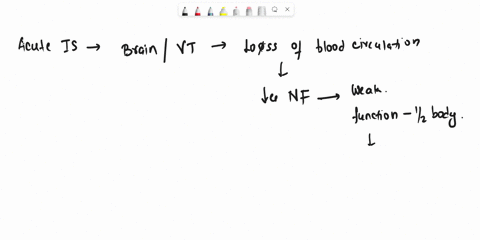 Acute IS → Brain / VT → Loss of blood circulation
↓
↓e NF → Weak.
function - 1/2 body.
↓